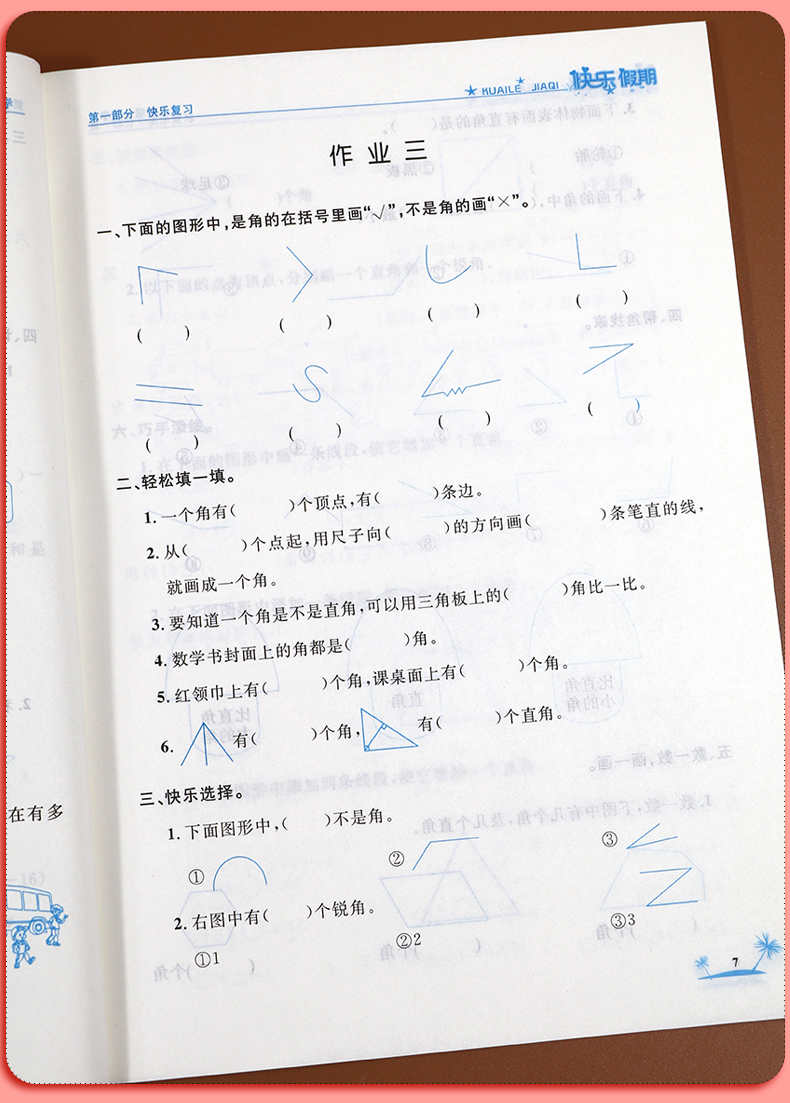 第一部分 快乐复习
KUAILE JIAQI 快乐假期
作业三
一、下面的图形中,是角的在括号里画“√”,不是角的画“×”。
( ) ( ) ( ) ( )
( ) ( ) ( ) ( )
二、轻松填一填。
1. 一个角有( )个顶点,有( )条边。
2. 从( )个点起,用尺子向( )的方向画( )条笔直的线,
就画成一个角。
3. 要知道一个角是不是直角,可以用三角板上的( )角比一比。
4. 数学书封面上的角都是( )角。
5. 红领巾上有( )个角,课桌面上有( )个角。
6. 有( )个角, 有( )个直角。
三、快乐选择。
1. 下面图形中,( )不是角。
① ② ③
2. 右图中有( )个锐角。
①1 ②2 ③3
7
在有多